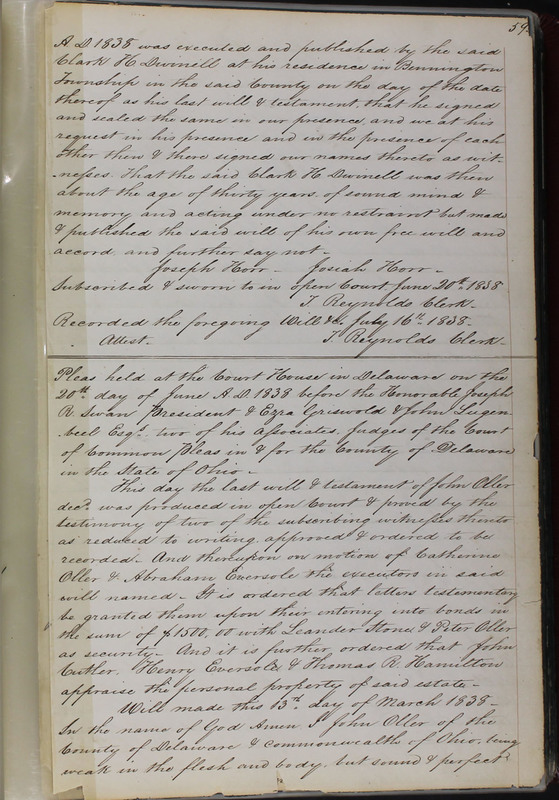 59
A D 1838 was executed and published by the said
Clark H Dwinell at his residence in Bennington
Township in the said County on the day of the date
thereof as his last will & testament, that he signed
and sealed the same in our presence, and we at his
request in his presence and in the presence of each
other then & there signed our names thereto as wit-
-nesses. That the said Clark H. Dwinell was then
about the age of thirty years, of sound mind &
memory and acting under no restraint but made
& published the said will of his own free will and
accord, and further say not -
Joseph Horr - Josiah Horr -
Subscribed & sworn to in open Court June 20th 1838
T Reynolds Clerk -
Recorded the foregoing Will &c. July 16th 1838 -
Attest. T. Reynolds Clerk -
Pleas held at the Court House in Delaware on the
20th day of June A.D. 1838 before the Honorable Joseph
R. Swan President & Ezra Griswold & John Lugen
beel Esqs. two of his Associates, Judges of the Court
of Common Pleas in & for the County of Delaware
in the State of Ohio -
This day the last will & testament of John Oller
decd. was produced in open Court & proved by the
testimony of two of the subscribing witnesses thereto
as reduced to writing approved & ordered to be
recorded - And thereupon on motion of Catherine
Oller & Abraham Eversole the executors in said
will named - It is ordered that letters testamentary
be granted them upon their entering into bonds in
the sum of $1500,00 with Leander Stone & Peter Oller
as security - And it is further ordered that John
Cutler, Henry Eversole & Thomas R. Hamilton
appraise the personal property of said estate -
Will made this 13th day of March 1838 -
In the name of God Amen. I John Oller of the
County of Delaware & Commonwealth of Ohio, being
weak in the flesh and body, but sound & perfect